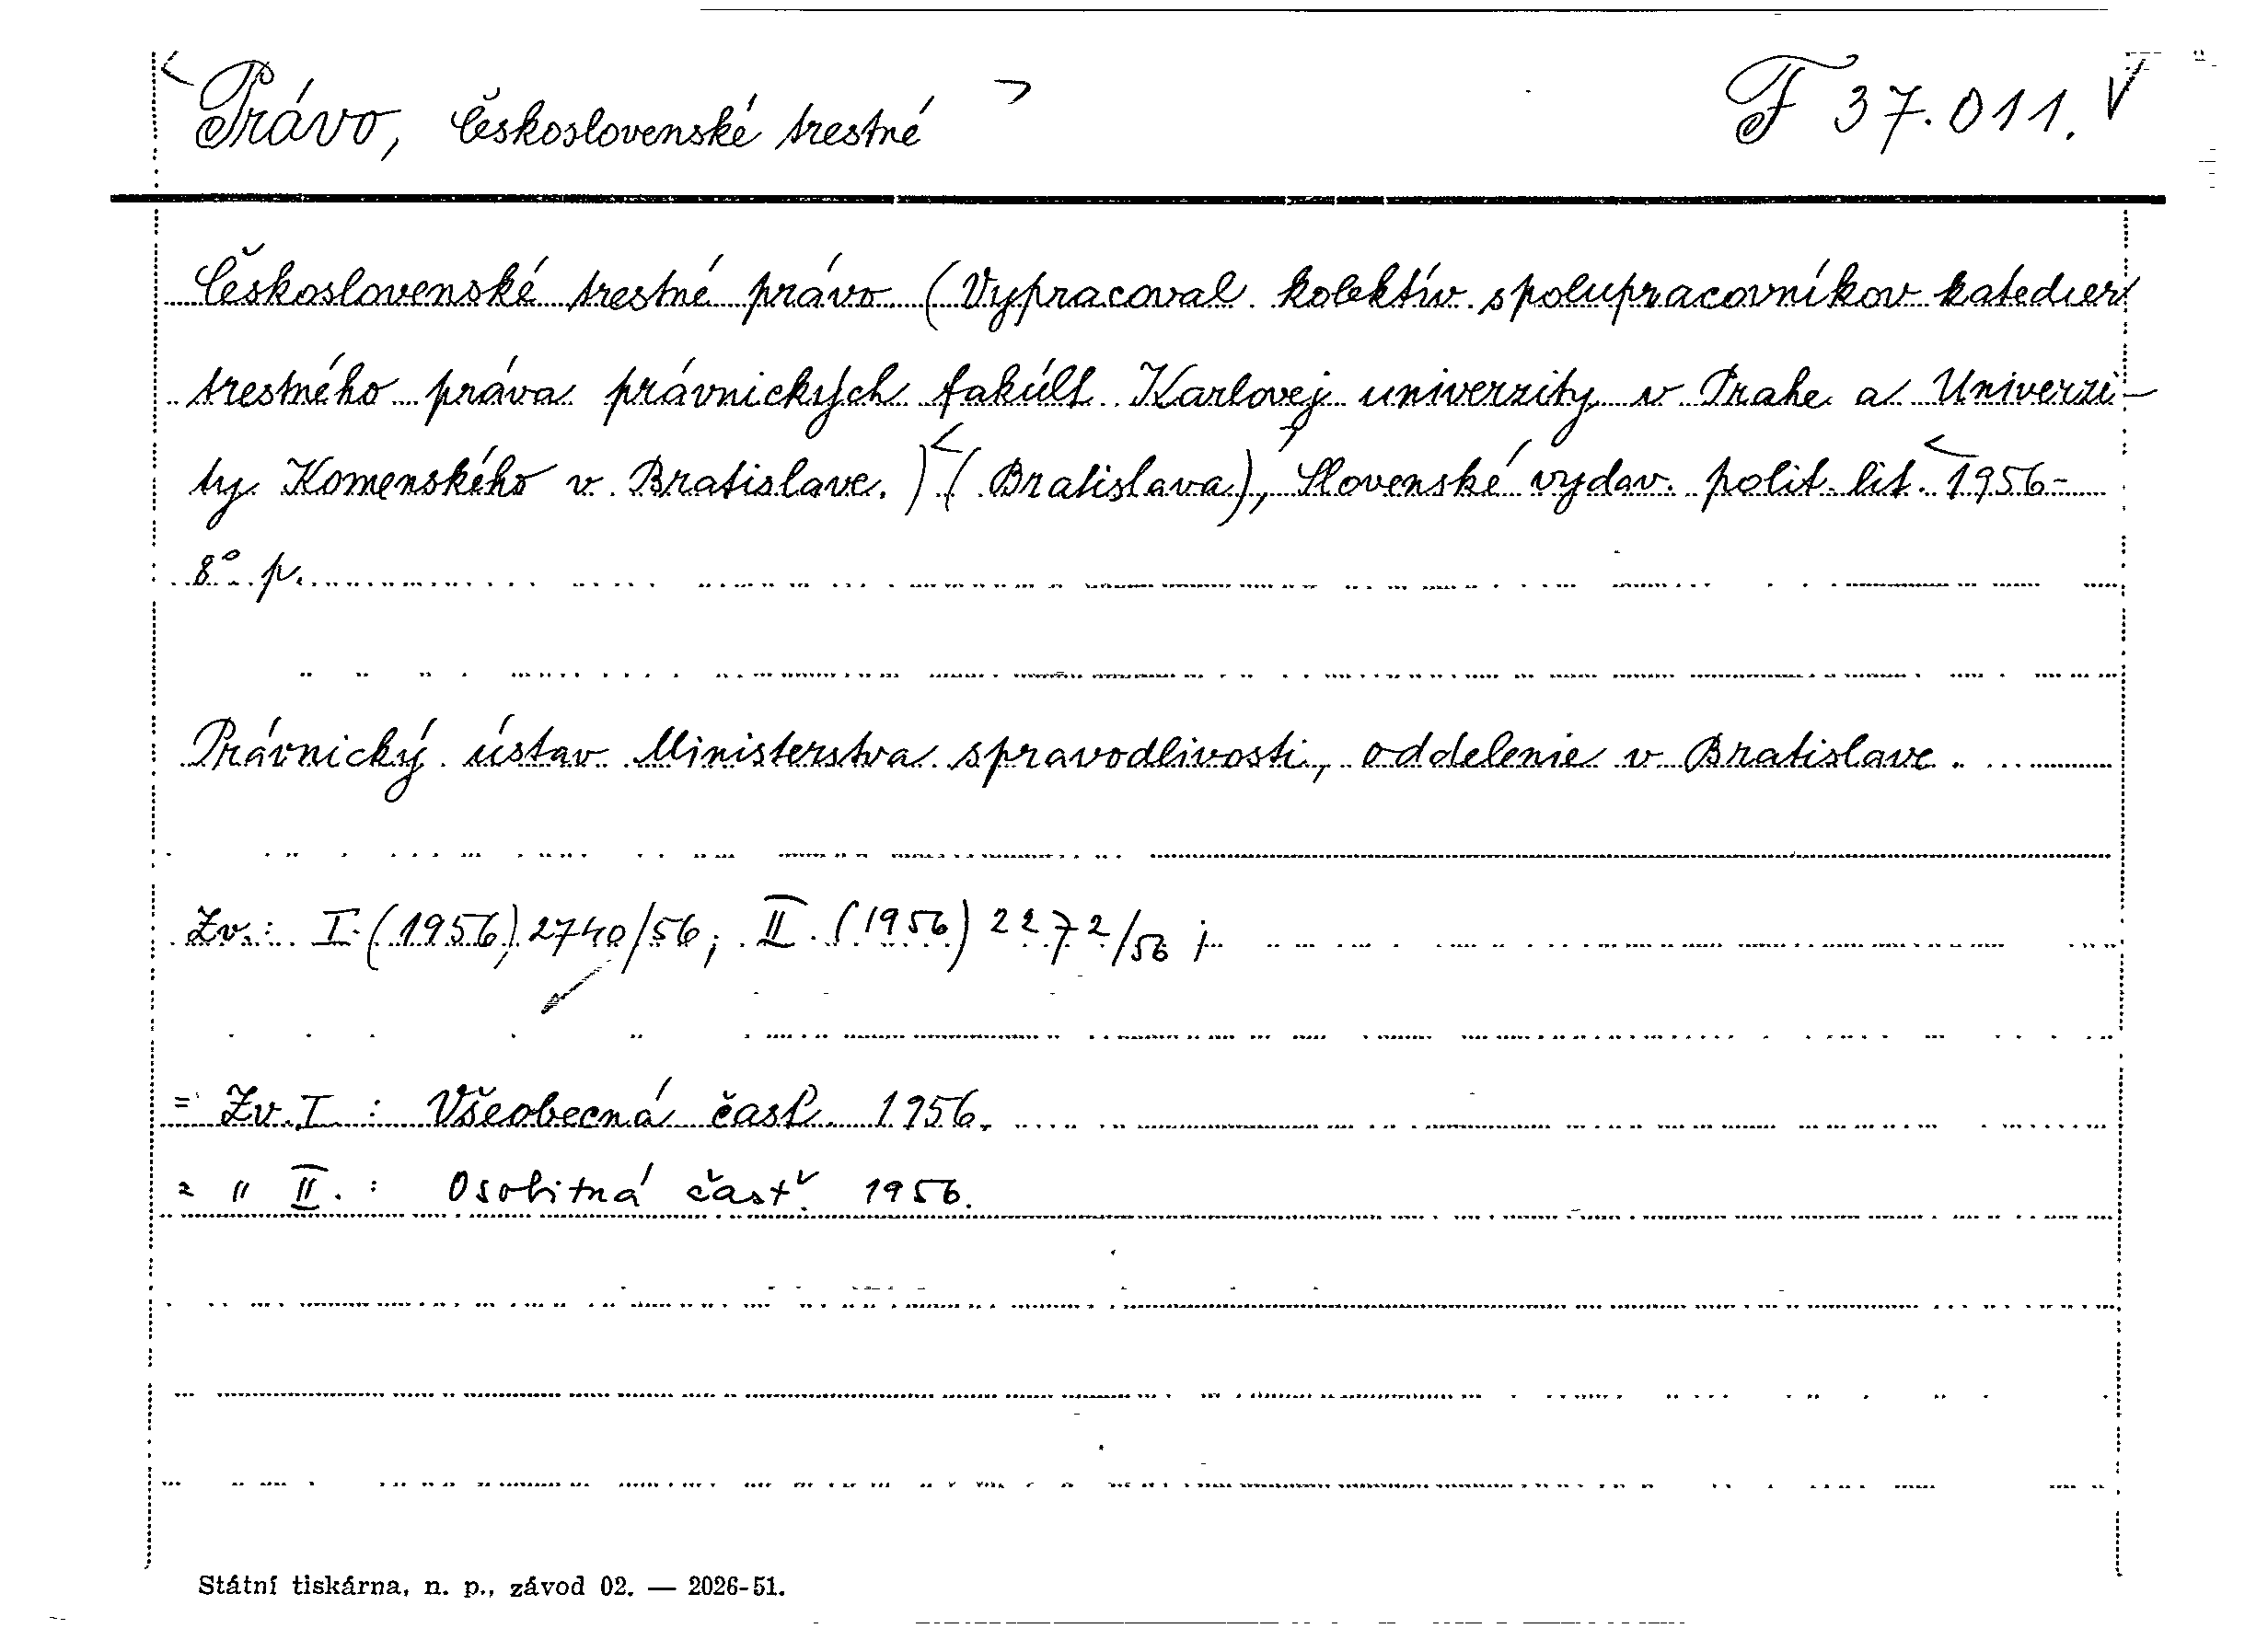 Právo, Československé trestné F 37.011.
Československé trestné právo (Vypracoval kolektív spolupracovníkov katedier
trestného práva právnických fakúlt Karlovej univerzity v Prahe a Univerzi-
ty Komenského v Bratislave.) (Bratislava), Slovenské vydav. polit. lit. 1956-
8° p.
Právnický ústav Ministerstva spravodlivosti, oddelenie v Bratislave.
Zv.: I. (1956) 2740/56; II. (1956) 2272/56;
= Zv. I : Všeobecná časť. 1956.
= " II. : Osobitná časť. 1956.
Státní tiskárna, n. p., závod 02. — 2026-51.